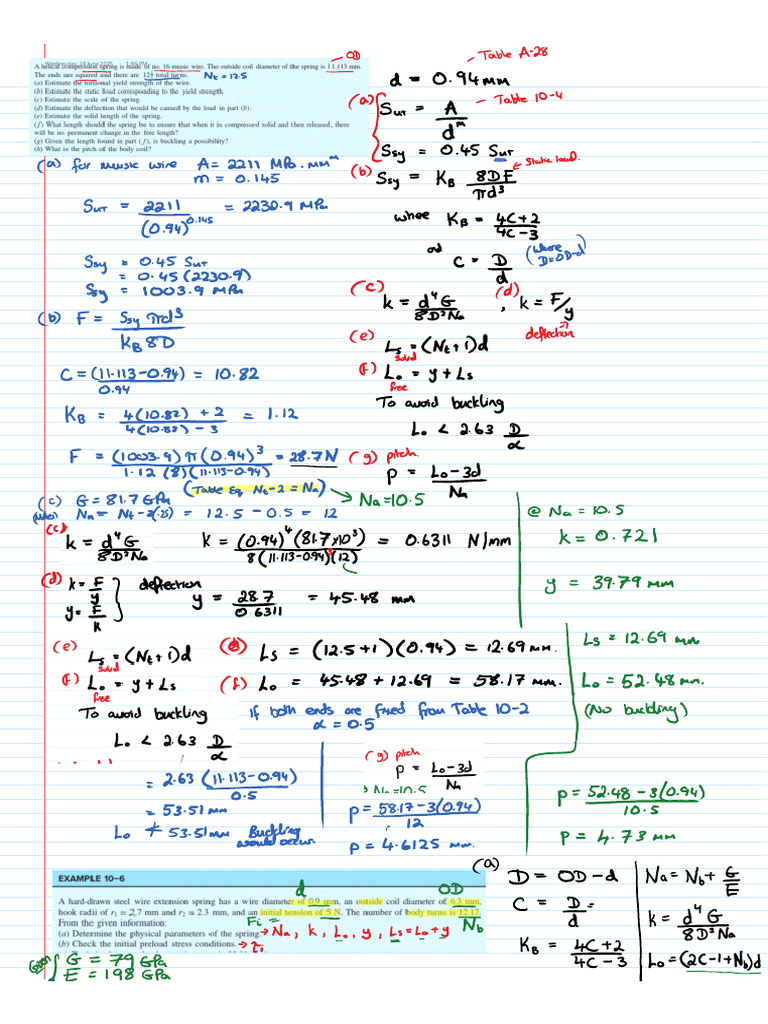 Wednesday, 18 June 2025 1:46 PM
A helical compression spring is made of no. 16 music wire. The outside coil diameter of the spring is 11.113 mm.
The ends are squared and there are 12½ total turns.
(a) Estimate the torsional yield strength of the wire.
(b) Estimate the static load corresponding to the yield strength.
(c) Estimate the scale of the spring.
(d) Estimate the deflection that would be caused by the load in part (b).
(e) Estimate the solid length of the spring.
(f) What length should the spring be to ensure that when it is compressed solid and then released, there
will be no permanent change in the free length?
(g) Given the length found in part (f), is buckling a possibility?
(h) What is the pitch of the body coil?
OD
Nt = 12.5
Table A-28
d = 0.94mm
(a) Sut = A/d^m
Table 10-4
Ssy = 0.45 Sut
(b) Ssy = KB 8DF/πd³
Static load.
where KB = 4C+2/4C-3
and C = D/d
(where D=OD-d)
(c) k = d⁴G/8D³Na , (d) k = F/y
deflection
(e) Ls = (Nt+1)d
solid
(f) Lo = y + Ls
free
To avoid buckling
Lo < 2.63 D/α
(g) pitch
p = Lo-3d/Na
(a) for music wire A = 2211 MPa.mm^m
m = 0.145
Sut = 2211/(0.94)^0.145 = 2230.9 MPa
Ssy = 0.45 Sut
= 0.45 (2230.9)
Ssy = 1003.9 MPa
(b) F = Ssy πd³/KB 8D
C = (11.113-0.94)/0.94 = 10.82
KB = 4(10.82) + 2/4(10.82) - 3 = 1.12
F = (1003.9) π (0.94)³/1.12 (8)(11.113-0.94) = 28.7 N
(Table Eq. Nt-2 = Na) → Na=10.5
(c) G = 81.7 GPa
Na = Nt - 2(.25) = 12.5 - 0.5 = 12
(c) k = d⁴G/8D³Na k = (0.94)⁴(81.7×10³)/8(11.113-0.94)³(12) = 0.6311 N/mm
(d) k = F/y
y = F/k
deflection y = 28.7/0.6311 = 45.48 mm
(e) Ls = (Nt+1)d
solid
(e) Ls = (12.5+1)(0.94) = 12.69 mm.
(f) Lo = y + Ls
free
(f) Lo = 45.48 + 12.69 = 58.17 mm.
To avoid buckling
Lo < 2.63 D/α
If both ends are fixed from Table 10-2
α = 0.5
= 2.63 (11.113-0.94)/0.5
= 53.51mm
Lo ≮ 53.51mm Buckling would occur.
(g) pitch
p = Lo-3d/Na
p = 58.17-3(0.94)/12
p = 4.6125 mm.
@ Na = 10.5
k = 0.721
y = 39.79 mm
Ls = 12.69 mm
Lo = 52.48 mm.
(No buckling)
p = 52.48 - 3(0.94)/10.5
p = 4.73 mm
EXAMPLE 10-6
d
OD
A hard-drawn steel wire extension spring has a wire diameter of 0.9 mm, an outside coil diameter of 6.3 mm,
hook radii of r1 = 2.7 mm and r2 = 2.3 mm, and an initial tension of 5 N. The number of body turns is 12.17.
From the given information:
Fi =
Nb
(a) Determine the physical parameters of the spring. → Na, k, Lo, y, Ls=Lo+y
(b) Check the initial preload stress conditions. → τi
Given
G = 79 GPa
E = 198 GPa
(a) D = OD - d
C = D/d =
KB = 4C+2/4C-3
Na = Nb + G/E
k = d⁴G/8D³Na
Lo = (2C-1+Nb)d